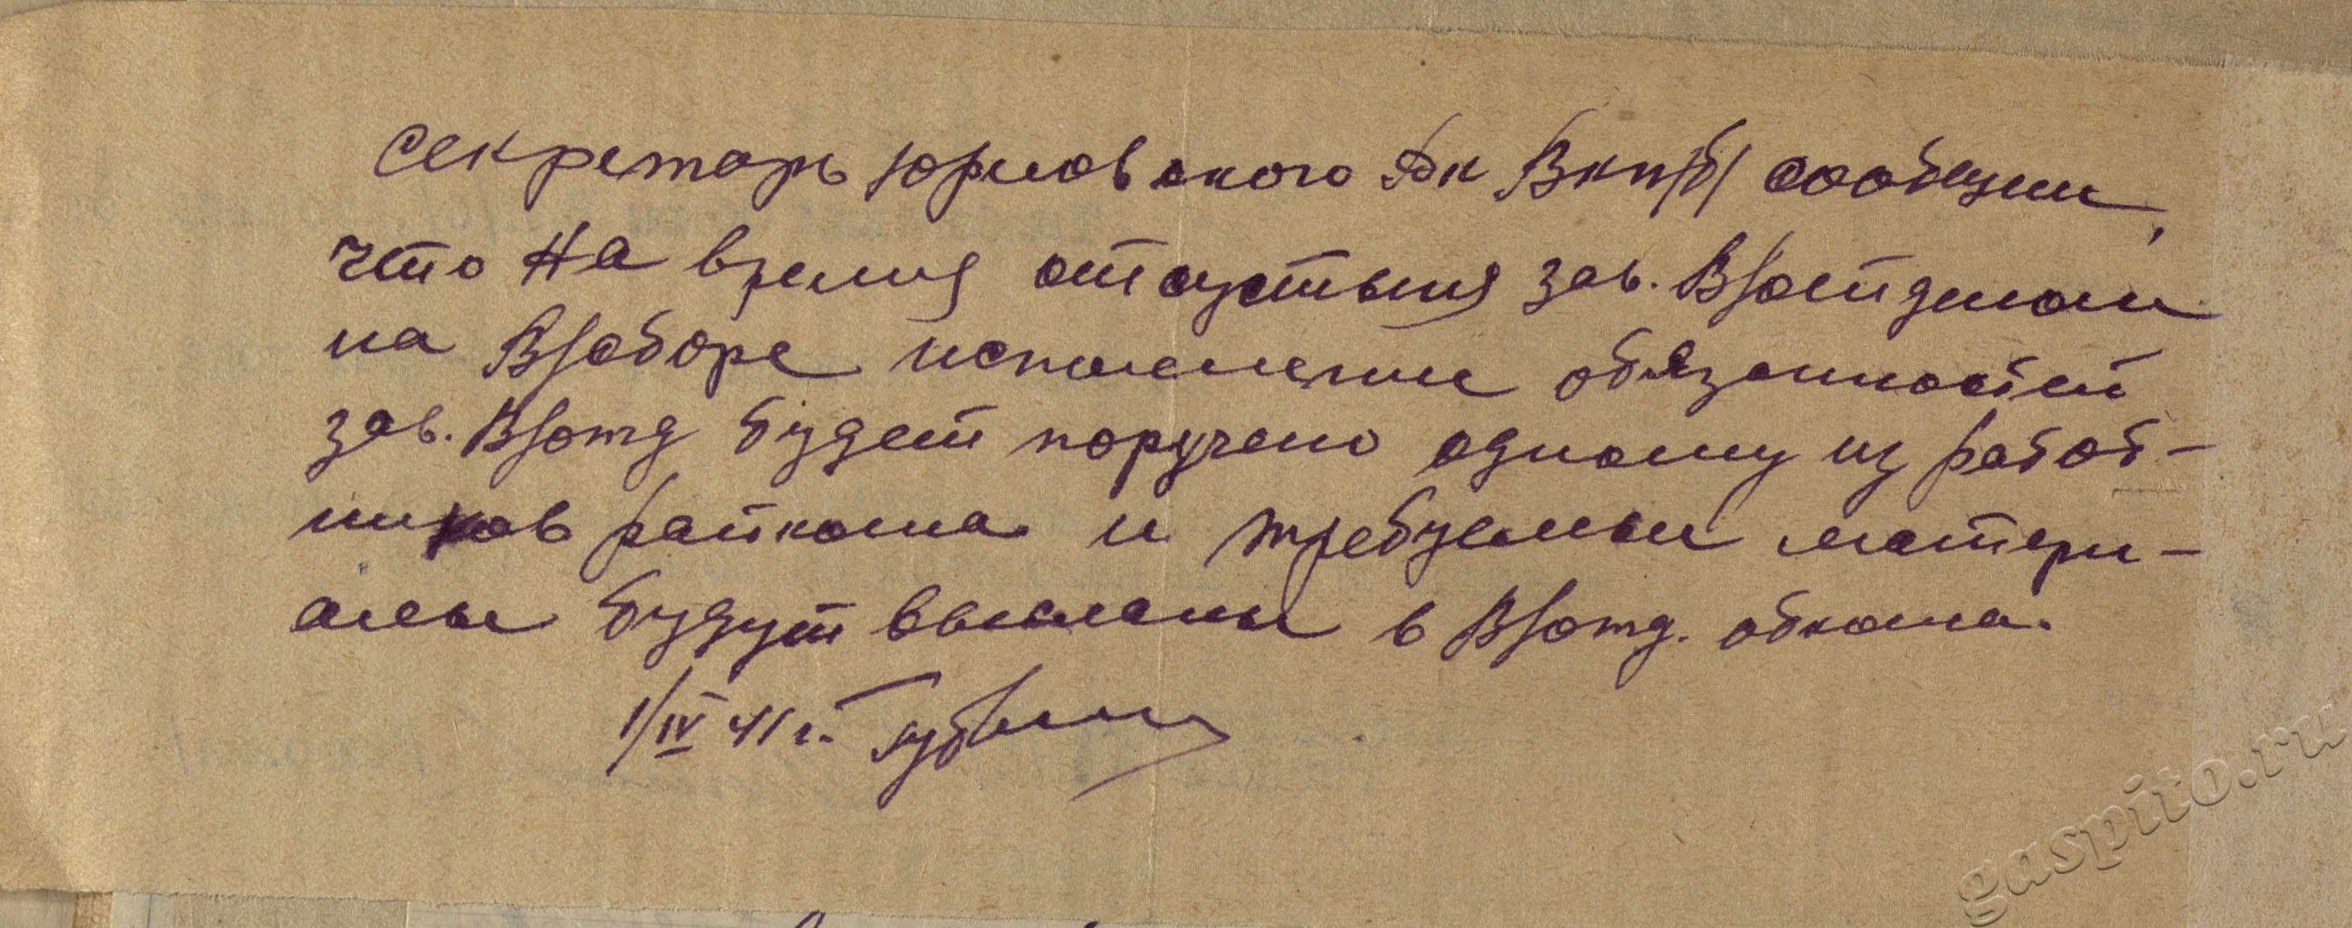 Секретарь Юрловского Рк ВКП/б/ сообщил,
что на время отсуствия зав. В/отделом
на В/сборе исполнение обязанностей
зав. В/отд будет поручено одному из работ-
ников райкома и требуемые матери-
алы будут высланы в В/отд. обкома.
1/IV 41 г.
gaspito.ru